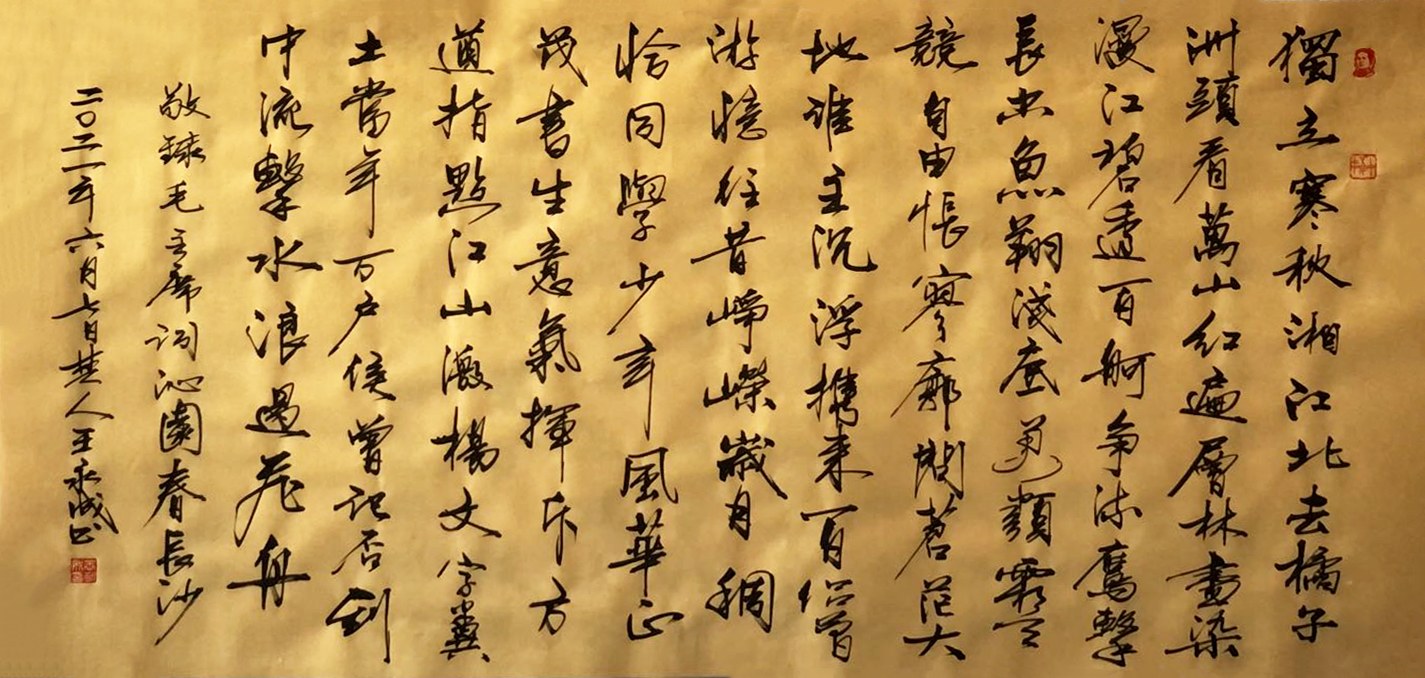 獨立寒秋湘江北去橘子
洲頭看萬山紅遍層林盡染
漫江碧透百舸争流鷹擊
長空魚翔淺底万類霜天
競自由悵寥廓問蒼茫大
地誰主沉浮攜来百侣曾
游憶往昔崢嶸歲月稠
恰同學少年風華正
茂書生意氣揮斥方
遒指點江山激楊文字糞
土當年万户侯曾記否到
中流擊水浪遏飛舟
敬録毛主席詞沁園春長沙
二〇二一年六月七日楚人王永成书